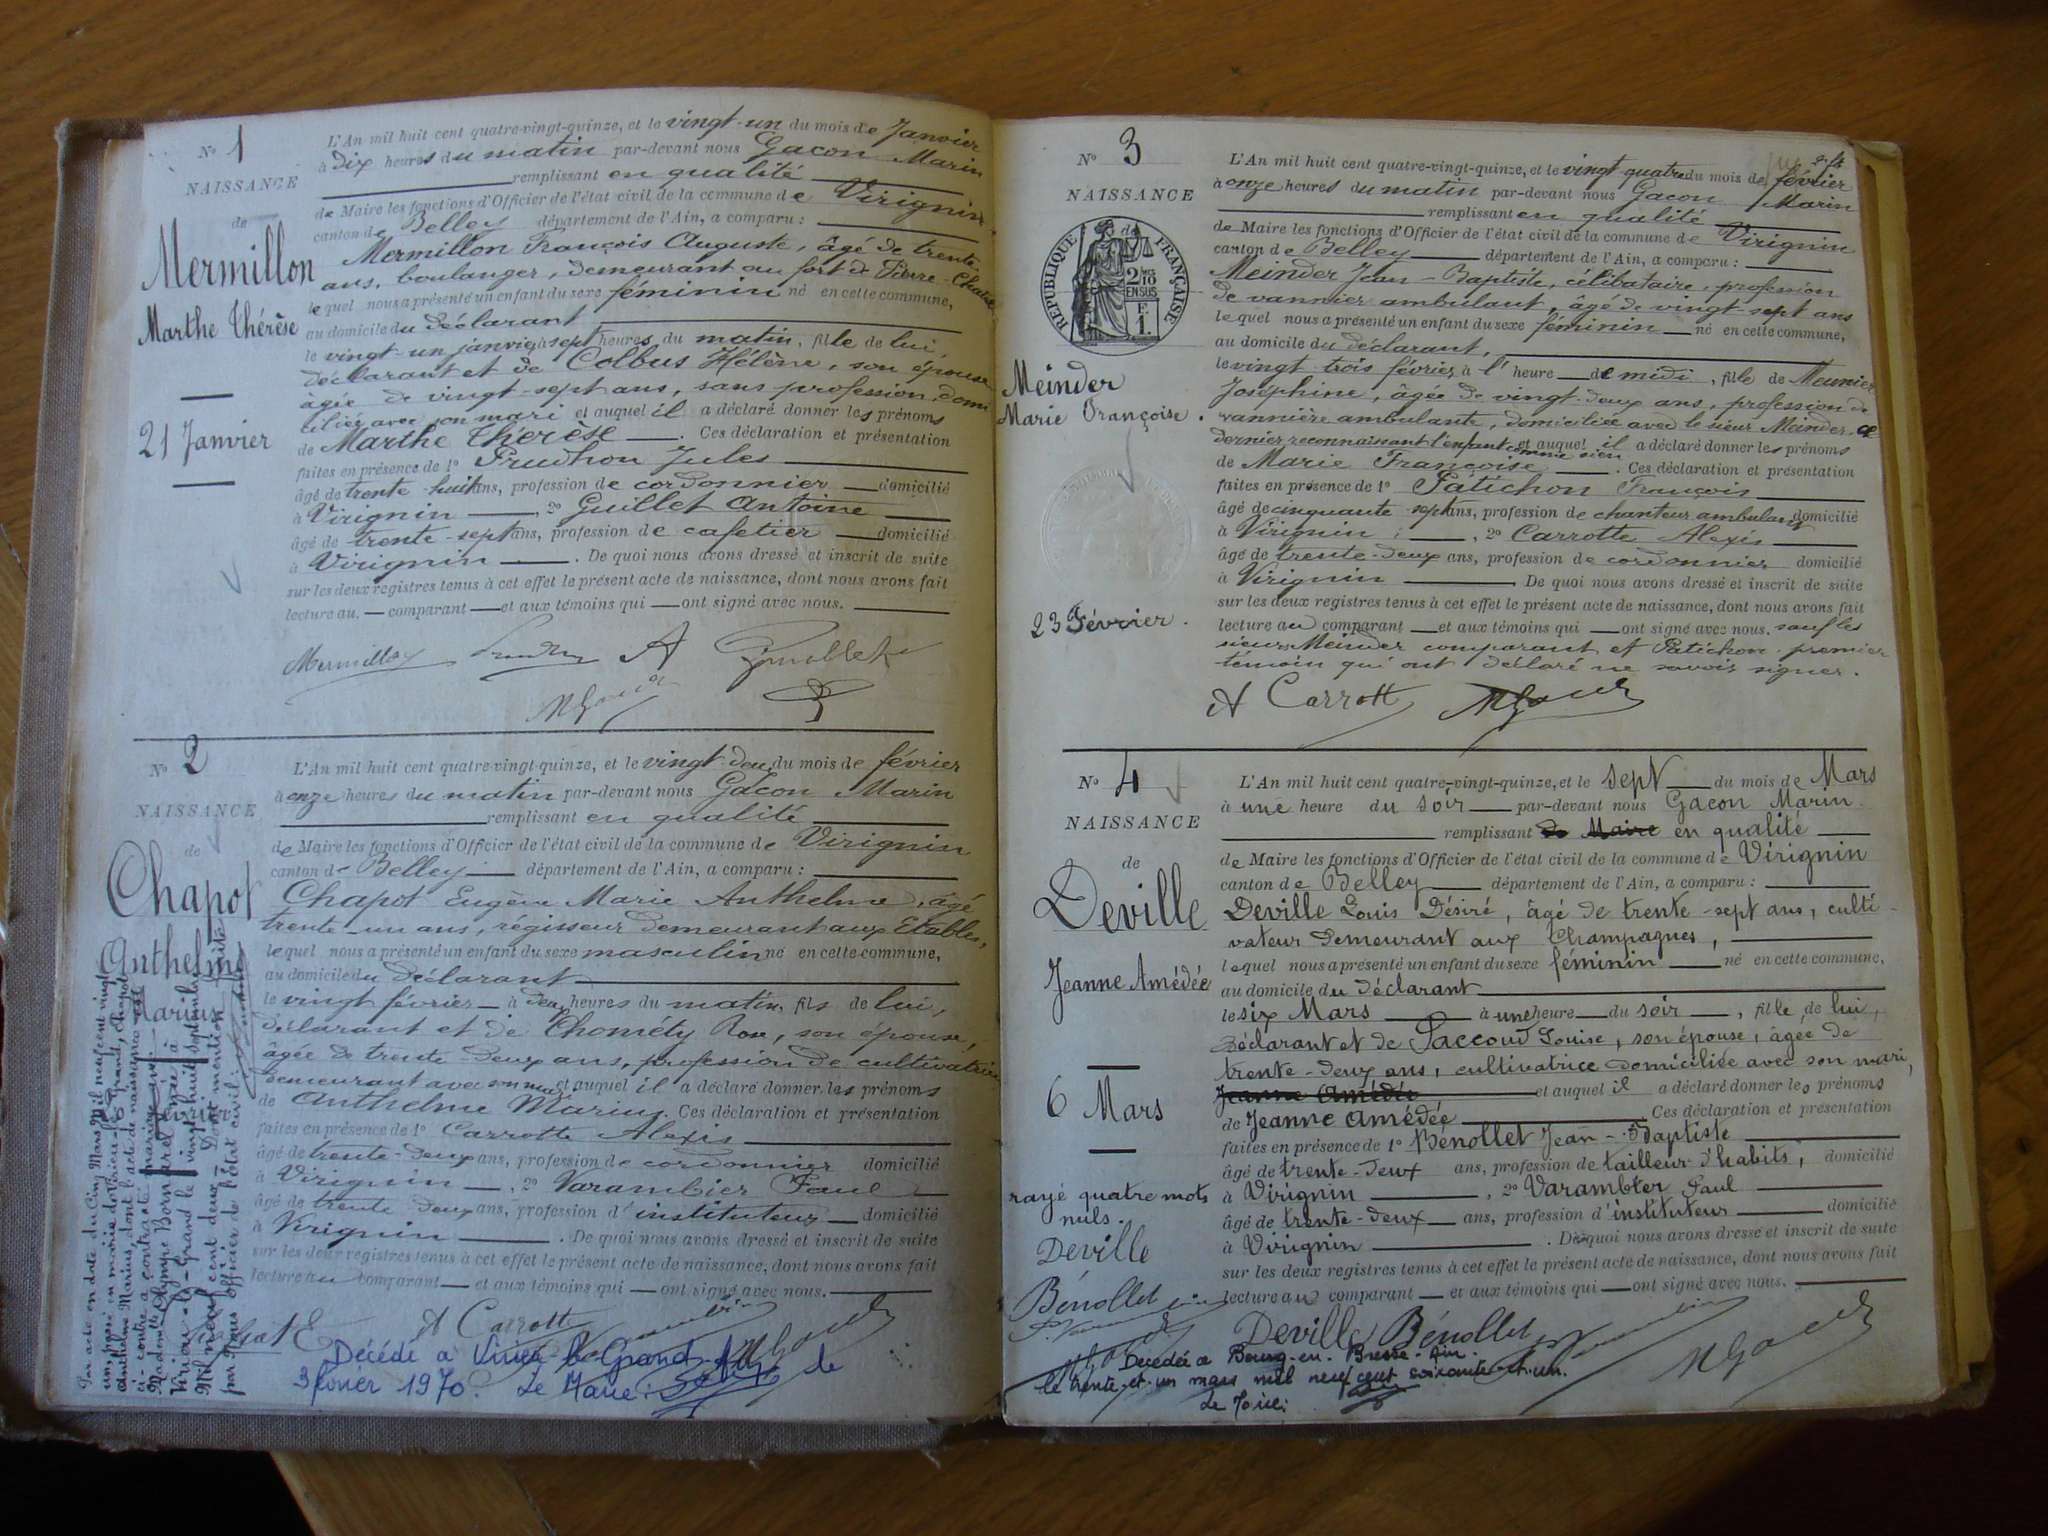 N° 1
NAISSANCE
de
Mermillon
Marthe Thérèse
21 Janvier
L'An mil huit cent quatre-vingt-quinze, et le vingt-un du mois de Janvier
à dix heures du matin par-devant nous Gacon Marin
remplissant en qualité
de Maire les fonctions d'Officier de l'état civil de la commune de Virignin
canton de Belley département de l'Ain, a comparu :
Mermillon François Auguste, âgé de trente
ans, boulanger, demeurant au fort de Pierre-Chatel
lequel nous a présenté un enfant du sexe féminin né en cette commune,
au domicile du déclarant
le vingt-un janvier à sept heures du matin, fille de lui,
déclarant et de Colbus Hélène, son épouse
âgée de vingt-sept ans, sans profession, domi
ciliée avec son mari et auquel il a déclaré donner les prénoms
de Marthe Thérèse . Ces déclaration et présentation
faites en présence de 1° Prudhon Jules
âgé de trente-huit ans, profession de cordonnier domicilié
à Virignin , 2° Guillet Antoine
âgé de trente-sept ans, profession de cafetier domicilié
à Virignin . De quoi nous avons dressé et inscrit de suite
sur les deux registres tenus à cet effet le présent acte de naissance, dont nous avons fait
lecture au comparant et aux témoins qui ont signé avec nous.
Mermillon A Guillet
MGacon
N° 2
NAISSANCE
de
Chapot
Anthelme
Marius
L'An mil huit cent quatre-vingt-quinze, et le vingt-deux du mois de février
à onze heures du matin par-devant nous Gacon Marin
remplissant en qualité
de Maire les fonctions d'Officier de l'état civil de la commune de Virignin
canton de Belley département de l'Ain, a comparu :
Chapot Eugène Marie Anthelme, âgé
trente-un ans, régisseur demeurant aux Etables,
lequel nous a présenté un enfant du sexe masculin né en cette commune,
au domicile du déclarant
le vingt février à deux heures du matin, fils de lui,
déclarant et de Thomély Rose, son épouse,
âgée de trente deux ans, profession de cultivatrice
demeurant avec son mari et auquel il a déclaré donner les prénoms
de Anthelme Marius. Ces déclaration et présentation
faites en présence de 1° Carrotte Alexis
âgé de trente-deux ans, profession de cordonnier domicilié
à Virignin , 2° Varambier Paul
âgé de trente deux ans, profession d'instituteur domicilié
à Virignin . De quoi nous avons dressé et inscrit de suite
sur les deux registres tenus à cet effet le présent acte de naissance, dont nous avons fait
lecture au comparant et aux témoins qui ont signé avec nous.
A Carrott MGacon
Décédé à Virieu-le-Grand le
3 février 1970. Le Maire :
Par acte en date du Cinq Mars Mil neuf cent vingt
un, passé en mairie de Virieu-le-Grand, Chapot
Anthelme Marius, dont l'acte de naissance est
ci-contre a contracté mariage avec
Mademoiselle Olympe Bonnarel
Virieu-le-Grand le vingt-huit septembre
Mil neuf cent deux. Dont mention faite
par Nous officier de l'état civil :
N° 3
NAISSANCE
de
RÉPUBLIQUE FRANÇAISE
2/10 EN SUS
F. 1.
Meinder
Marie Françoise.
23 Février.
L'An mil huit cent quatre-vingt-quinze, et le vingt quatre du mois de février
à onze heures du matin par-devant nous Gacon Marin
remplissant en qualité
de Maire les fonctions d'Officier de l'état civil de la commune de Virignin
canton de Belley département de l'Ain, a comparu :
Meinder Jean-Baptiste, célibataire, profession
de vannier ambulant, âgé de vingt-sept ans
lequel nous a présenté un enfant du sexe féminin né en cette commune,
au domicile du déclarant,
le vingt trois février à l'heure de midi, fille de Meunier
Joséphine, âgée de vingt-deux ans, profession de
vannière ambulante, domiciliée avec le sieur Meinder, ce
dernier reconnaissant l'enfant comme sien et auquel il a déclaré donner les prénoms
de Marie Françoise . Ces déclaration et présentation
faites en présence de 1° Patichon François
âgé de cinquante sept ans, profession de chanteur ambulant domicilié
à Virignin ; , 2° Carrotte Alexis
âgé de trente-deux ans, profession de cordonnier domicilié
à Virignin . De quoi nous avons dressé et inscrit de suite
sur les deux registres tenus à cet effet le présent acte de naissance, dont nous avons fait
lecture au comparant et aux témoins qui ont signé avec nous. sauf les
sieurs Meinder comparant et Patichon premier
témoin qui ont déclaré ne savoir signer.
A Carrott MGacon
N° 4
NAISSANCE
de
Deville
Jeanne Amédée
6 Mars
rayé quatre mots
nuls.
Deville
Bénollet
L'An mil huit cent quatre-vingt-quinze, et le sept du mois de Mars
à une heure du soir par-devant nous Gacon Marin.
remplissant de Maire en qualité
de Maire les fonctions d'Officier de l'état civil de la commune de Virignin
canton de Belley département de l'Ain, a comparu :
Deville Louis Désiré, âgé de trente-sept ans, culti-
vateur demeurant aux Champagnes,
lequel nous a présenté un enfant du sexe féminin né en cette commune,
au domicile du déclarant
le six Mars à une heure du soir , fille de lui,
déclarant et de Paccoud Louise, son épouse, âgée de
trente-deux ans, cultivatrice domiciliée avec son mari,
Jeanne Amédée et auquel il a déclaré donner les prénoms
de Jeanne Amédée . Ces déclaration et présentation
faites en présence de 1° Bénollet Jean-Baptiste
âgé de trente-deux ans, profession de tailleur d'habits, domicilié
à Virignin , 2° Varambier Paul
âgé de trente-deux ans, profession d'instituteur domicilié
à Virignin . De quoi nous avons dressé et inscrit de suite
sur les deux registres tenus à cet effet le présent acte de naissance, dont nous avons fait
lecture au comparant et aux témoins qui ont signé avec nous.
Deville Bénollet MGacon
Décédée à Bourg-en-Bresse-Ain.
le trente-et-un mars mil neuf cent soixante-et-un.
Le Maire :